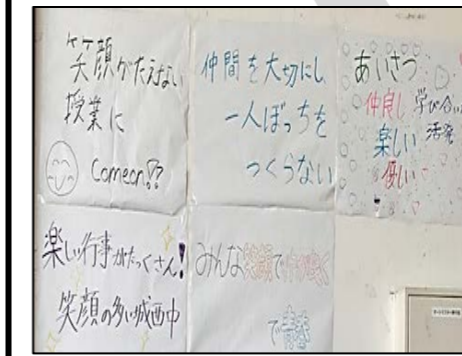 笑顔がたえない
授業に
Comeon!?
仲間を大切にし
一人ぼっちを
つくらない
あいさつ
仲良し
楽しい
優しい
学び合い
活発
楽しい行事がたくさん!
笑顔の多い城西中
みんな笑顔で仲良く
で青春